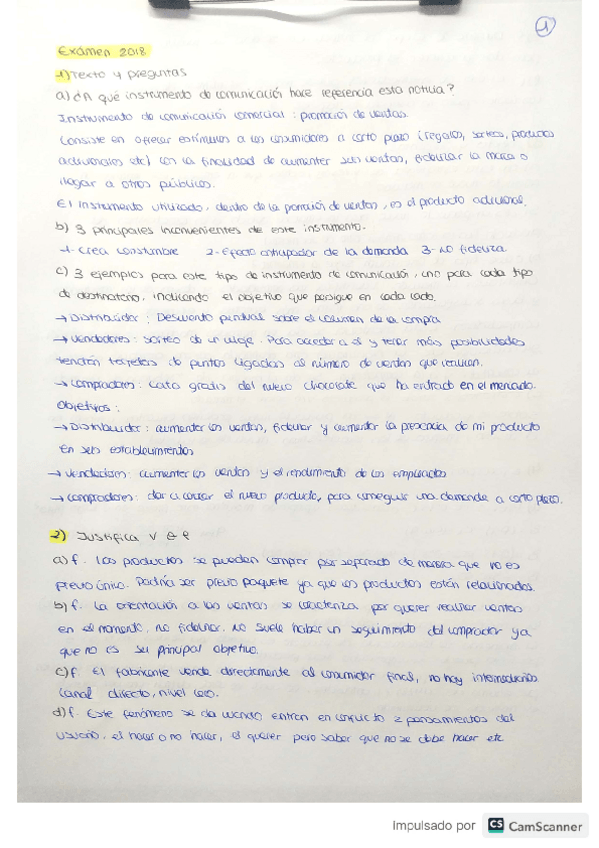 1
Examen 2018
1) Texto y preguntas
a) ¿A qué instrumento de comunicación hace referencia esta noticia?
Instrumento de comunicación comercial: promoción de ventas.
Consiste en ofrecer estímulos a los consumidores a corto plazo (regalos, sorteos, productos
adicionales etc) con la finalidad de aumentar sus ventas, fidelizar la marca o
llegar a otros públicos.
El instrumento utilizado, dentro de la promoción de ventas, es el producto adicional.
b) 3 principales inconvenientes de este instrumento.
1- Crea costumbre 2- Efecto anticipador de la demanda 3- No fideliza
c) 3 ejemplos para este tipo de instrumento de comunicación, uno para cada tipo
de destinatario, indicando el objetivo que persigue en cada caso.
→ Distribuidor: Descuento puntual sobre el volumen de la compra
→ Vendedores: sorteo de un viaje. Para acceder a él y tener más posibilidades
tendrán tarjetas de puntos ligadas al número de ventas que realicen.
→ Compradores: Cata gratis del nuevo chocolate que ha entrado en el mercado.
Objetivos:
→ Distribuidor: aumentar las ventas, fidelizar y aumentar la presencia de mi producto
en sus establecimientos
→ Vendedores: aumentar las ventas y el rendimiento de los empleados
→ Compradores: dar a conocer el nuevo producto, para conseguir una demanda a corto plazo.
2) Justifica V o F
a) f. Los productos se pueden comprar por separado de manera que no es
precio único. Podría ser precio paquete ya que los productos están relacionados.
b) f. La orientación a las ventas se caracteriza por querer realizar ventas
en el momento, no fidelizar. No suele haber un seguimiento del comprador ya
que no es su principal objetivo.
c) f. El fabricante vende directamente al consumidor final, no hay intermediarios
Canal directo, nivel cero.
d) f. Este fenómeno se da cuando entran en conflicto 2 pensamientos del
usuario, el hacer o no hacer, el querer pero saber que no se debe hacer etc
Impulsado por CS CamScanner